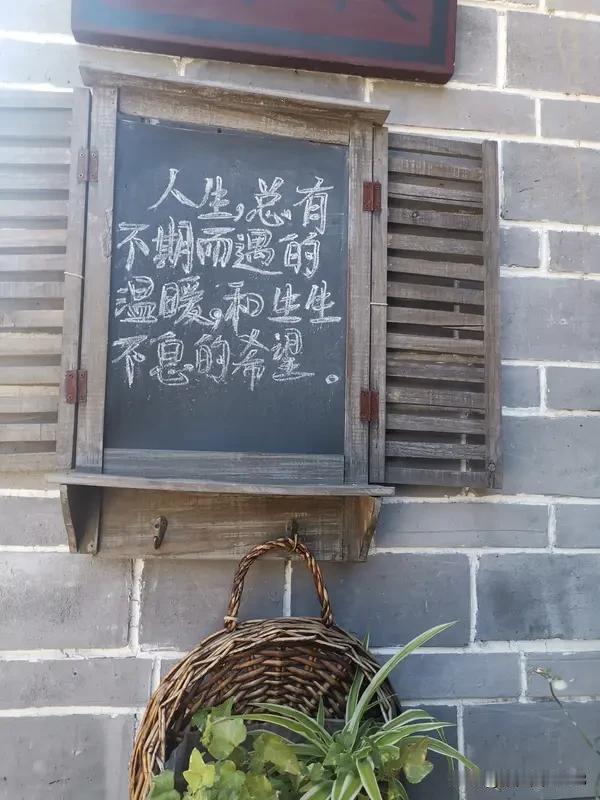 人生,总有
不期而遇的
温暖,和生生
不息的希望。